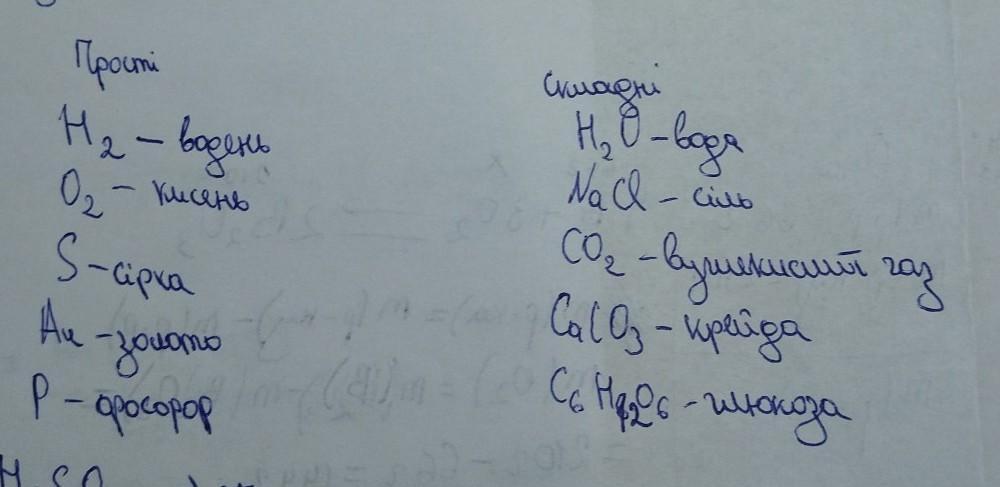 Прості
H₂ – водень
O₂ – кисень
S – сірка
Au – золото
P – фосфор
Складні
H₂O – вода
NaCl – сіль
CO₂ – вуглекислий газ
CaCO₃ – крейда
C₆H₁₂O₆ – глюкоза